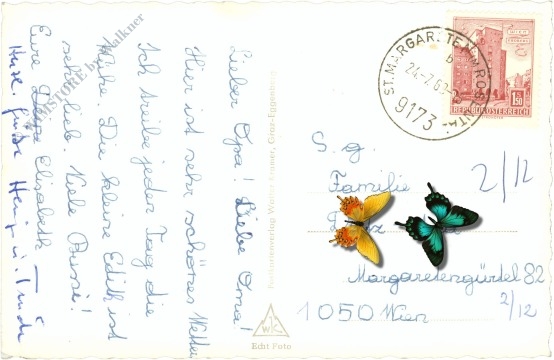 Lieber Opa! Liebe Oma!
Hier ist sehr schönes Wetter
Ich treibe jeden Tag die
Kühe. Die kleine Edith ist
sehr lieb. Viele Bussi!
Eure Elisabeth —
ST. MARGARETEN IM ROSENTAL
b
24.-7.69
9173
WIEN
ERDBERG
1.50
REPUBLIK ÖSTERREICH
S. g.
Familie
2/12
Margaretengürtel 82
2/12
1050 Wien
Postkartenverlag Walter Kramer, Graz-Eggenberg
WK
Edit Foto
STORE by Falkner